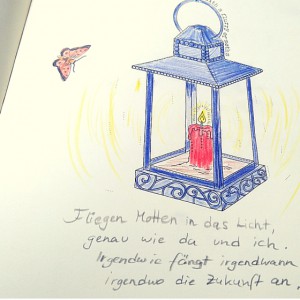 Fliegen Motten in das Licht,
genau wie du und ich.
Irgendwie fängt irgendwann
irgendwo die Zukunft an,